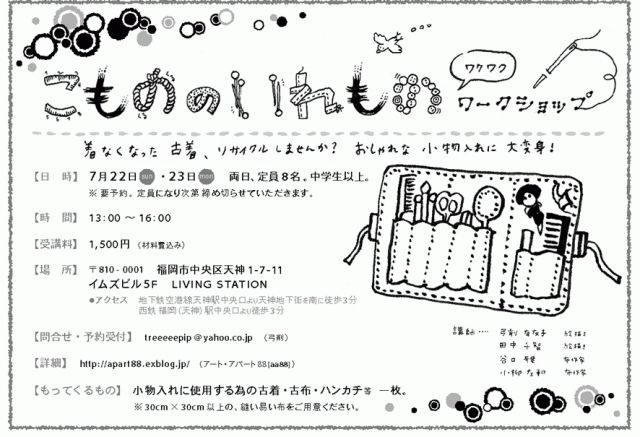 こものいれもの
ワクワク
ワークショップ
着なくなった古着、リサイクルしませんか? おしゃれな小物入れに大変身!
【日 時】 7月22日sun・23日mon 両日、定員8名。中学生以上。
※ 要予約。定員になり次第 締め切らせていただきます。
【時 間】 13:00 〜 16:00
【受講料】 1,500円 (材料費込み)
【場 所】 〒810-0001 福岡市中央区天神 1-7-11
イムズビル5F LIVING STATION
●アクセス 地下鉄空港線天神駅中央口より天神地下街を南に徒歩3分
西鉄 福岡(天神)駅中央口より徒歩3分
【問合せ・予約受付】 treeeeepip@yahoo.co.jp (弓削)
【詳細】 http://apart88.exblog.jp/ (アート・アパート88[aa88])
【もってくるもの】 小物入れに使用する為の古着・古布・ハンカチ等 一枚。
※ 30cm×30cm以上の、縫い易い布をご用意ください。
講師‥‥ 弓削 絵描き
田中千智 絵描き
谷口 布作家
小柳 布作家